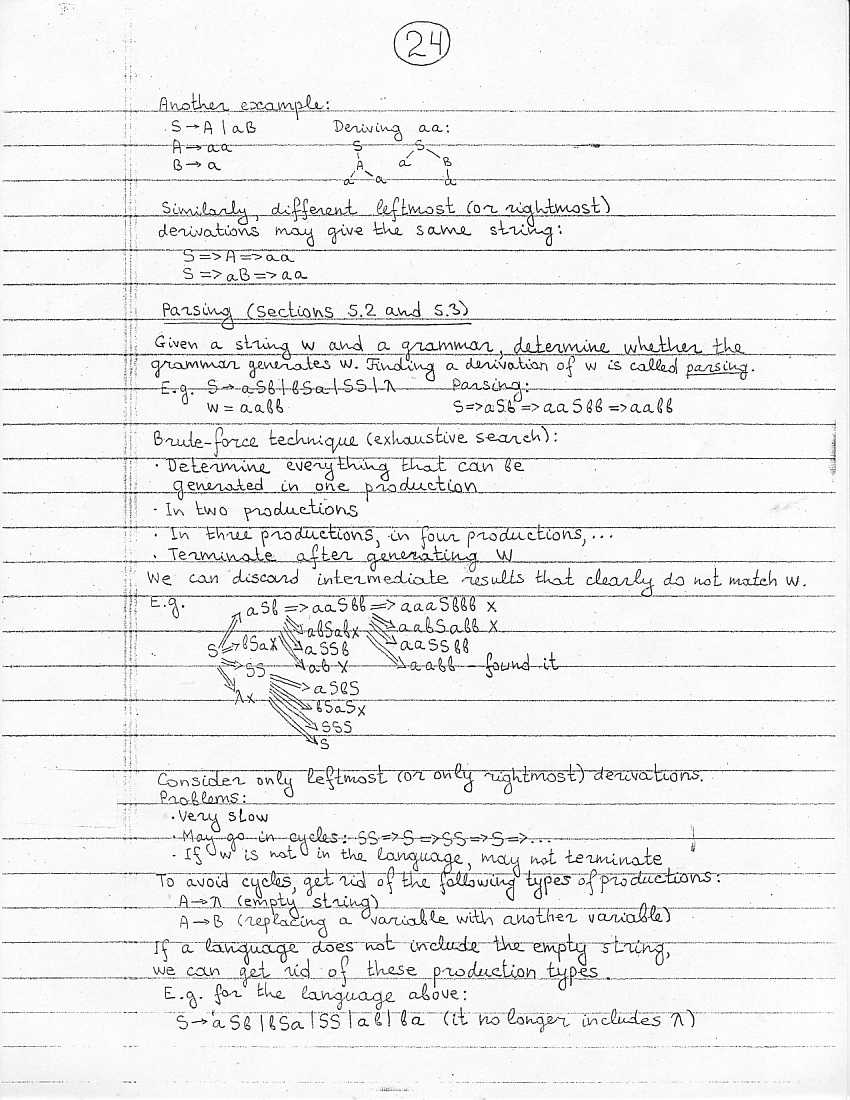 24
Another example:
S→A | aB Deriving aa:
A→aa S S
B→a A a B
a a a
Similarly, different leftmost (or rightmost)
derivations may give the same string:
S=>A=>aa
S=>aB=>aa
Parsing (Sections 5.2 and 5.3)
Given a string w and a grammar, determine whether the
grammar generates w. Finding a derivation of w is called parsing.
E.g. S→aSb|bSa|SS|λ Parsing:
w=aabb S=>aSb=>aaSbb=>aabb
Brute-force technique (exhaustive search):
· Determine everything that can be
generated in one production
· In two productions
· In three productions, in four productions,...
· Terminate after generating w
We can discard intermediate results that clearly do not match w.
E.g. aSb=>aaSbb=>aaaSbbb x
abSabx aabSabb x
S bSax aSSb aaSSbb
SS ab x aabb – found it
λx aSbS
bSaSx
SSS
S
Consider only leftmost (or only rightmost) derivations.
Problems:
· Very slow
· May go in cycles: SS=>S=>SS=>S=>...
· If w is not in the language, may not terminate
To avoid cycles, get rid of the following types of productions:
A→λ (empty string)
A→B (replacing a variable with another variable)
If a language does not include the empty string,
we can get rid of these production types.
E.g. for the language above:
S→aSb|bSa|SS|ab|ba (it no longer includes λ)